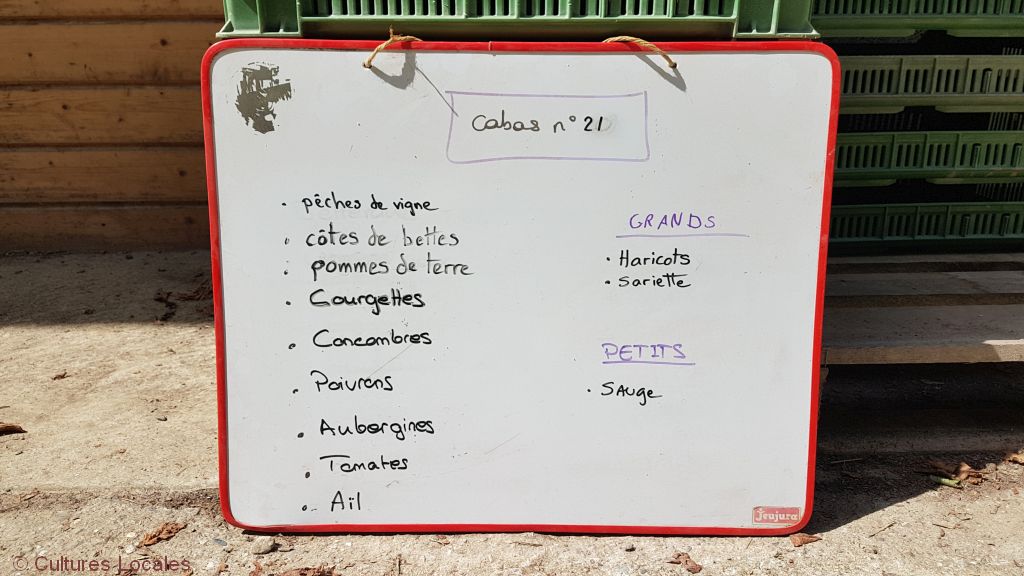 Cabas n° 21
• pêches de vigne
• côtes de bettes
• pommes de terre
• Courgettes
• Concombres
• Poivrons
• Aubergines
• Tomates
• Aïl
GRANDS
• Haricots
• Sariette
PETITS
• Sauge
Jeujura
© Cultures Locales